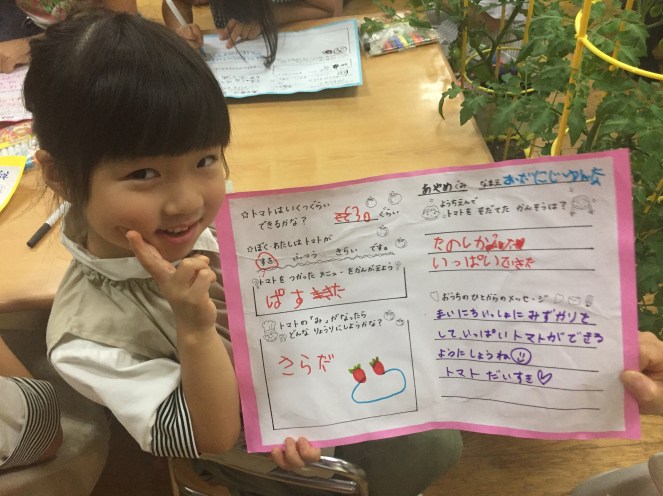 ☆トマトはいくつぐらい
できるかな？
ぐらい
☆ぼく・わたしはトマトが
すき ふつう きらい です。
トマトをつかったメニューをかんがえよう
ぱすた
トマトの「み」がなったら
どんなりょうりにしようかな？
さらだ
あやめぐみ なまえ
ようちえんで
トマトをそだてたかんそうは？
たのしかった
いっぱいできた
♡おうちのひとからのメッセージ
まいにちいっしょにみずやりを
していっぱいトマトができる
ようにしようね
トマトだいすき♡